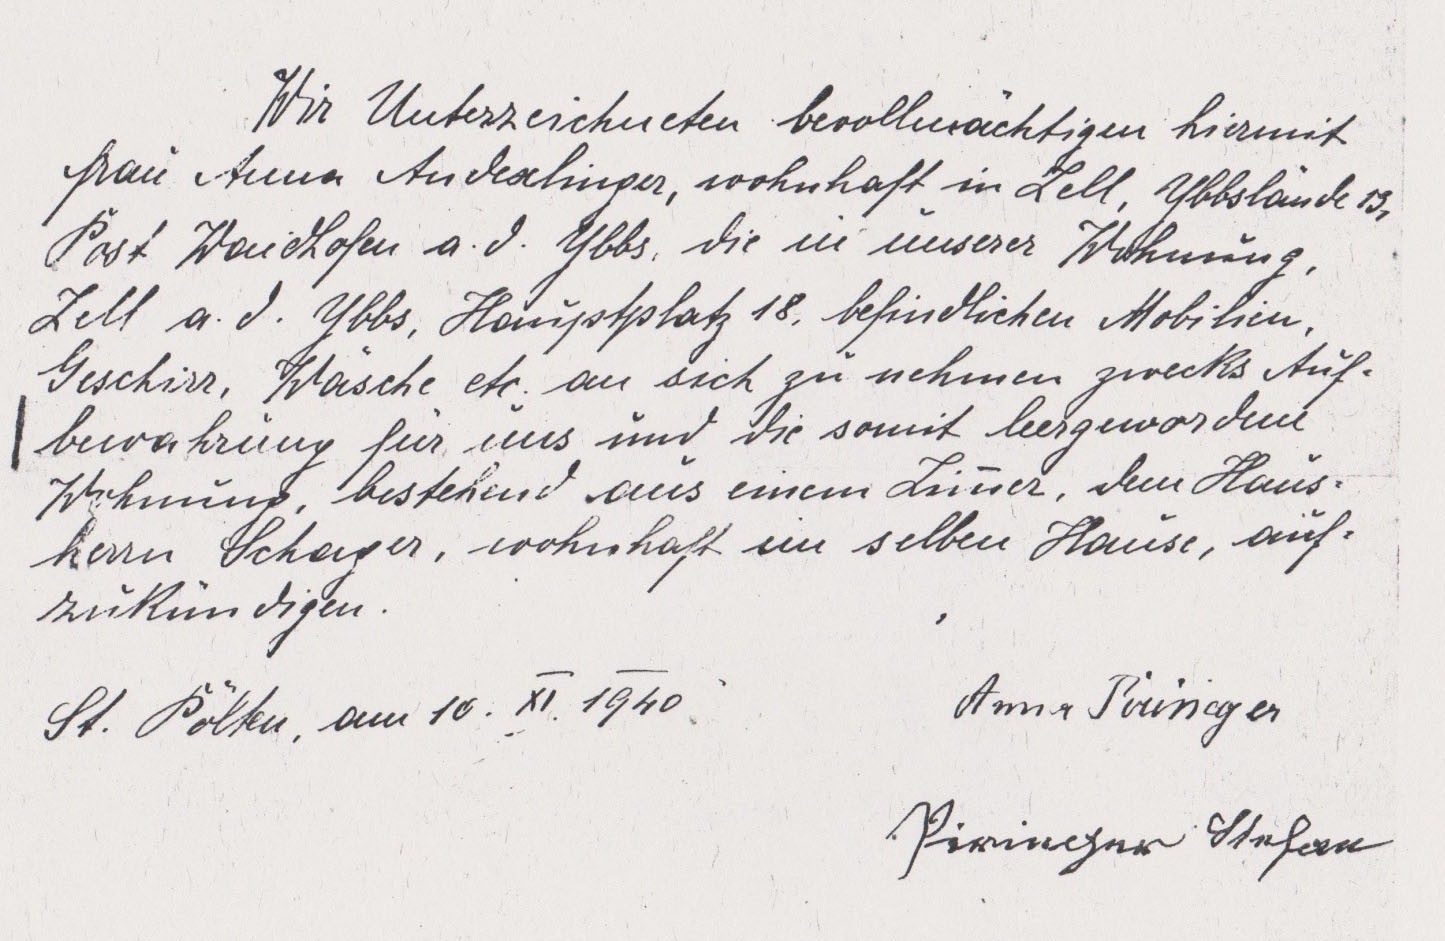 Wir Unterzeichneten bevollmächtigen hiermit
Frau Anna Andexlinger, wohnhaft in Zell, Ybbslände 13,
Post Waidhofen a. d. Ybbs, die in unserer Wohnung,
Zell a. d. Ybbs, Hauptplatz 18, befindlichen Mobilien,
Geschirr, Wäsche etc. an sich zu nehmen zwecks Auf-
bewahrung für uns und die somit leergewordene
Wohnung, bestehend aus einem Zim̅er, dem Haus-
herrn Schager, wohnhaft im selben Hause, auf-
zukündigen.
St. Pölten, am 10. XI. 1940
Anna Piringer
Piringer Stefan